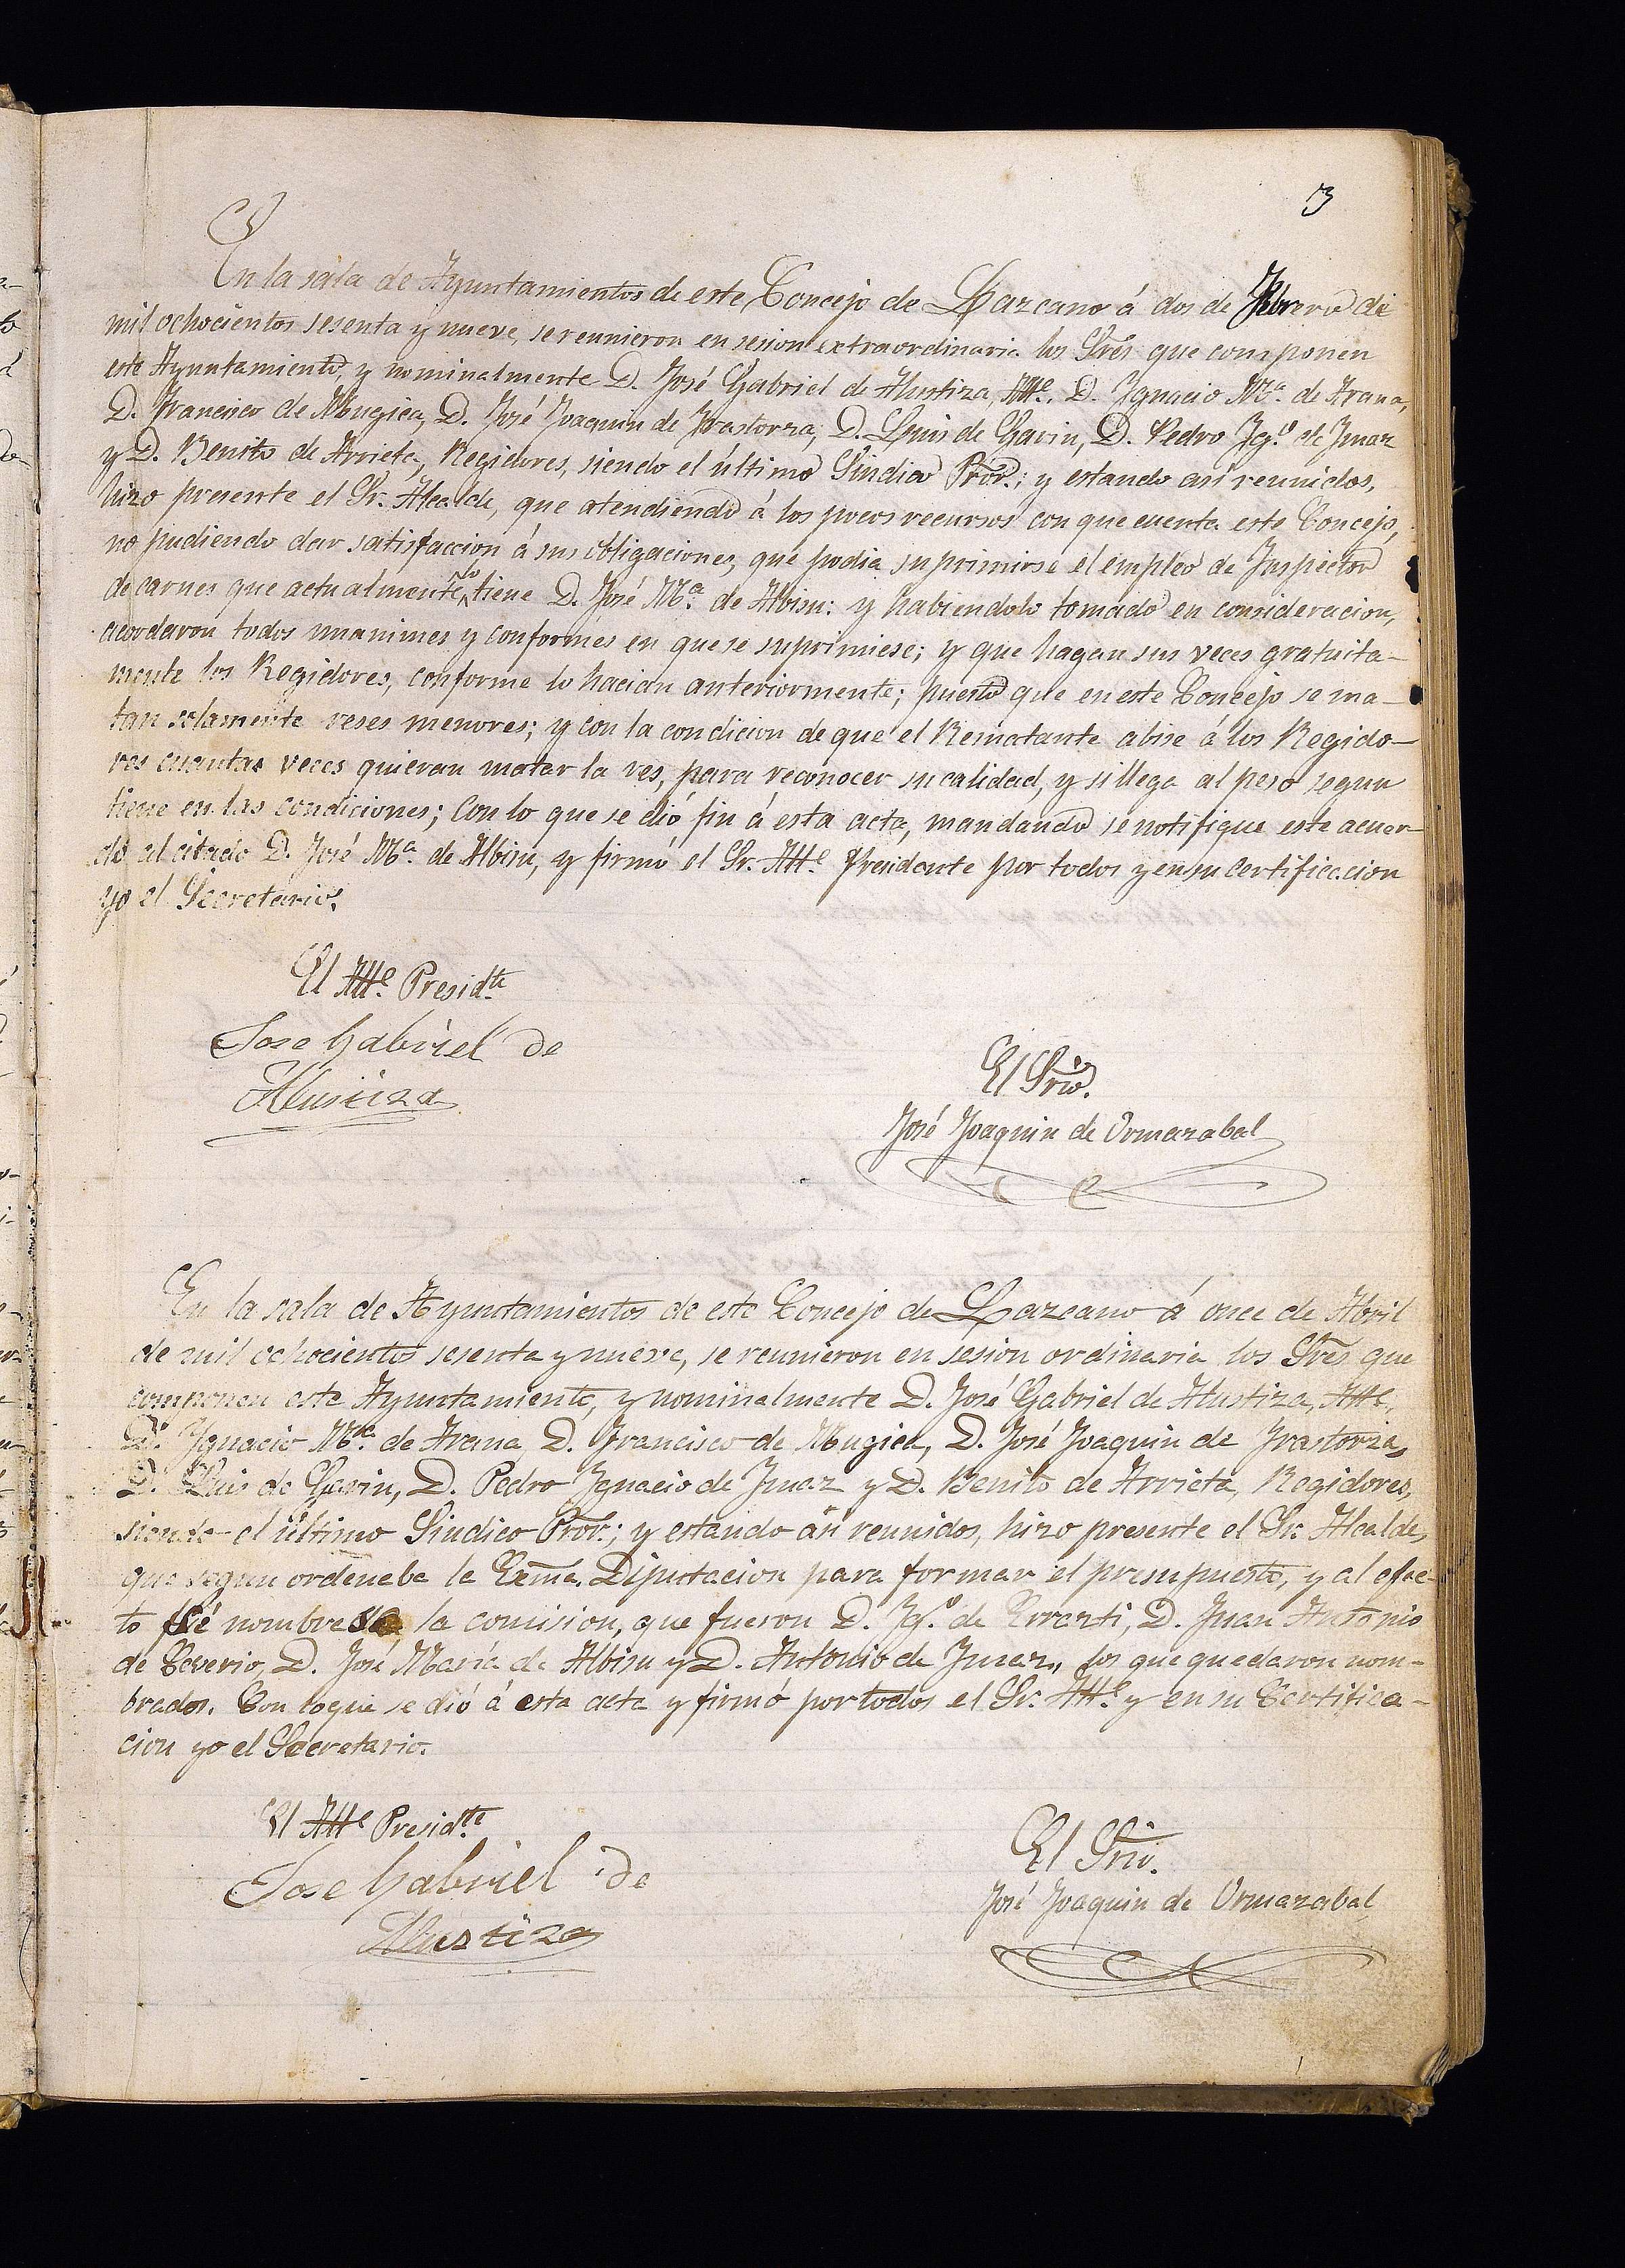 3
En la sala de Ayuntamientos de este Concejo de Lazcano á dos de Febrero de
mil ochocientos sesenta y nueve, se reunieron en sesion extraordinaria los Sres que componen
este Ayuntamiento, y nominalmente D. José Gabriel de Alustiza, Alle. D. Ignacio Ma. de Arana,
D. Francisco de Mugica, D. José Joaquin de Irastorza, D. Luis de Gavin, D. Pedro Igo. de Imaz
y D. Benito de Arrieta, Regidores, siendo el último Sindico Pror.; y estando asi reunidos,
hizo presente el Sr. Alcalde, que atendiendo á los pocos recursos con que cuenta este Concejo,
no pudiendo dar satisfaccion á sus obligaciones, que podia suprimirse el empleo de Inspector
de carnes que actualmente lo tiene D. José Ma. de Albisu: y habiendolo tomado en consideracion,
acordaron todos unanimes y conformes en que se suprimiese; y que hagan sus veces gratuita-
mente los Regidores, conforme lo hacian anteriormente; puesto que en este Concejo se ma-
tan solamente reses menores; y con la condicion de que el Rematante abise á los Regido-
res cuantas veces quieran matar la res, para reconocer su calidad, y si llega al peso segun
tiene en las condiciones; Con lo que se dió fin á esta acta, mandando se notifique este acuer-
do al citado D. José Ma. de Albisu, y firmó el Sr. Alle. Presidente por todos y en su certificacion
yo el Secretario.
El Alle. Presidte
Jose Gabriel de
Alustiza
El Srio.
José Joaquin de Ormazabal
En la sala de Ayuntamientos de este Concejo de Lazcano á once de Abril
de mil ochocientos sesenta y nueve, se reunieron en sesion ordinaria los Sres que
componen este Ayuntamiento, y nominalmente D. José Gabriel de Alustiza, Alle,
D. Ignacio Ma. de Arana, D. Francisco de Mugica, D. José Joaquin de Irastorza,
D. Luis de Gavin, D. Pedro Ignacio de Imaz y D. Benito de Arrieta, Regidores,
siendo el último Sindico Pror.; y estando asi reunidos, hizo presente el Sr. Alcalde,
que segun ordenaba la Exma. Diputacion para formar el presupuesto, y al efec-
to fué nombrada la comision, que fueron D. Igo. de Errazti, D. Juan Antonio
de D. José María de Albisu y D. Antonio de Imaz, los que quedaron nom-
brados. Con lo que se dió á esta acta y firmó por todos el Sr. Alle. y en su Certifica-
cion yo el Secretario.
El Alle Presidte
Jose Gabriel de
Alustiza
El Srio.
José Joaquin de Ormazabal